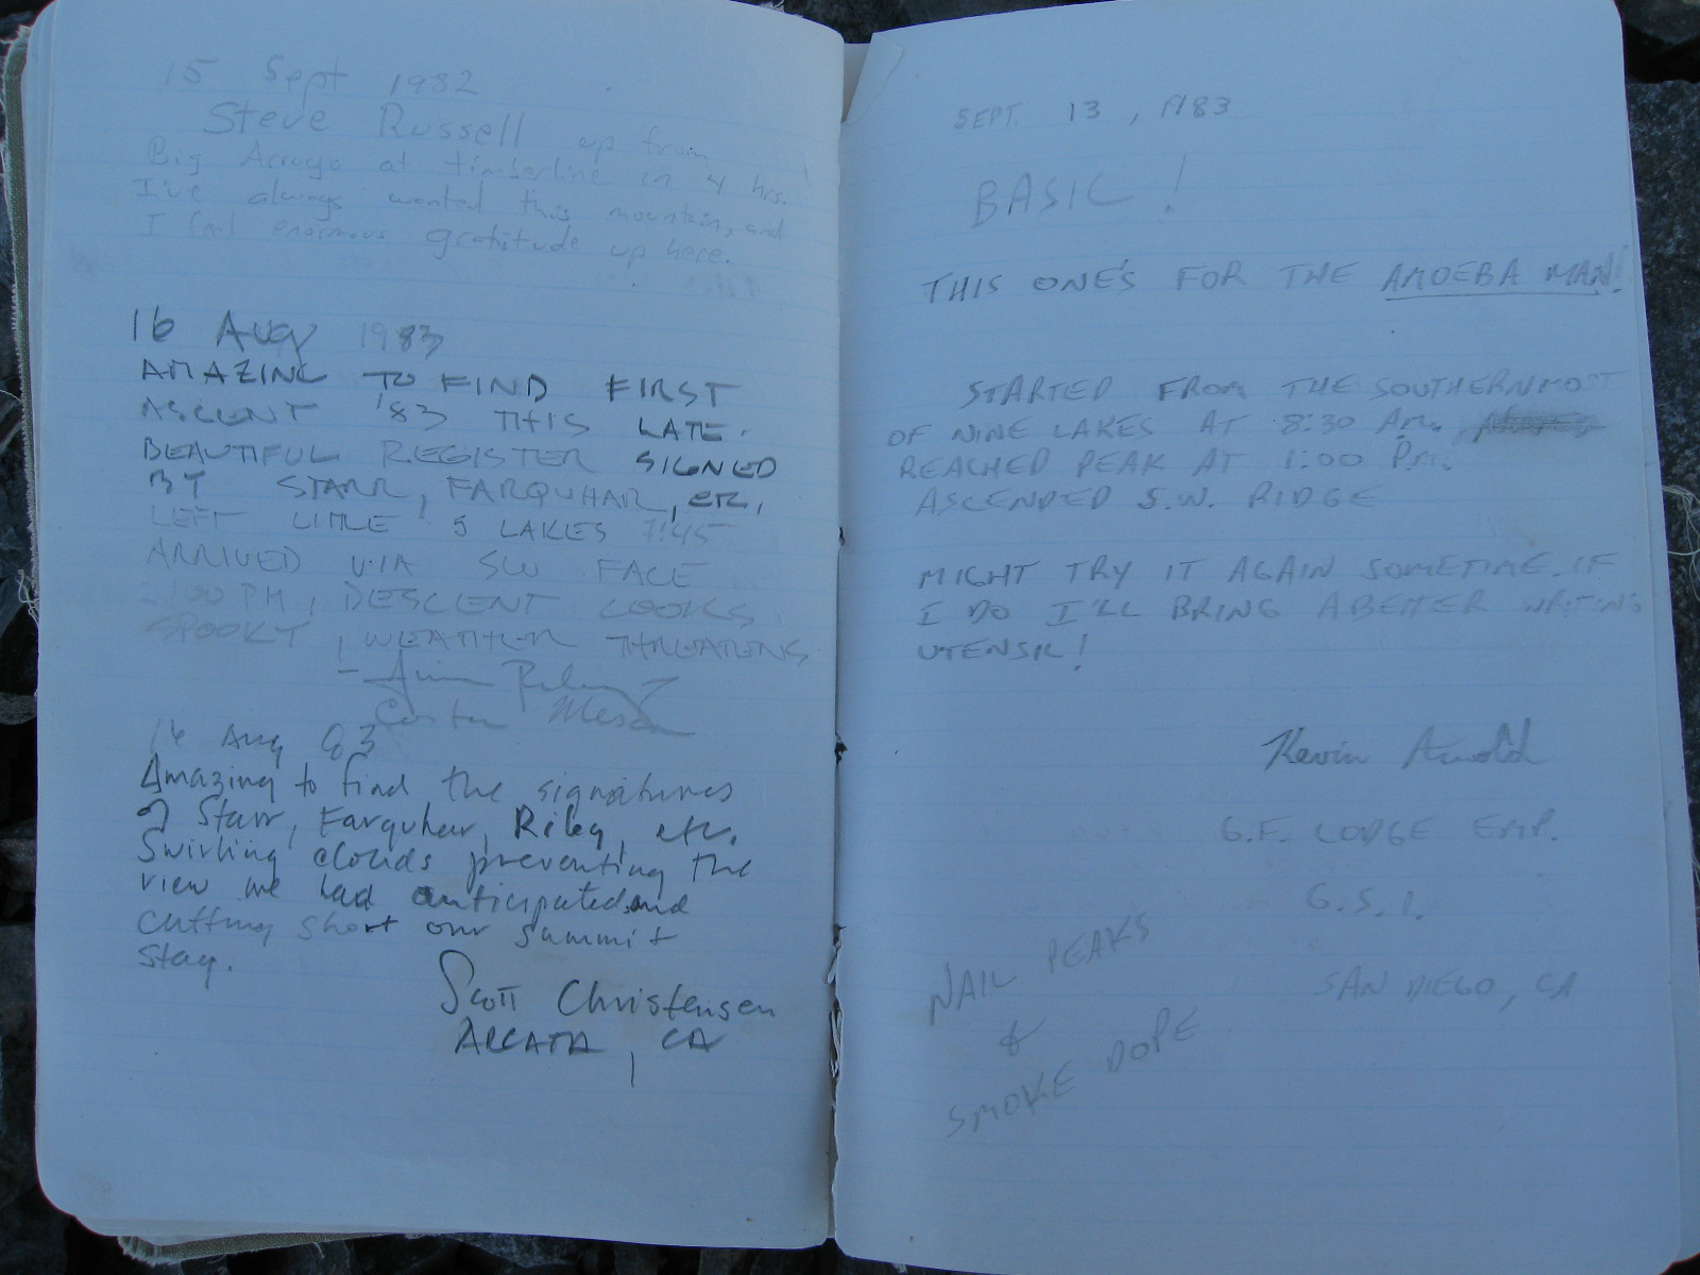 15 Sept 1982
Steve Russell up from
Big Arroyo at timberline in 4 hrs.
I've always wanted this mountain, and
I feel enormous gratitude up here.
16 Aug 1983
AMAZING TO FIND FIRST
ASCENT '83 THIS LATE.
BEAUTIFUL REGISTER SIGNED
BY STARR, FARQUHAR, ETC.
LEFT LITTLE 5 LAKES 7:45
ARRIVED VIA SW FACE
2:00 PM, DESCENT LOOKS
SPOOKY, WEATHER THREATENS
- Jim Riley
Costa Mesa
16 Aug 83
Amazing to find the signatures
of Starr, Farquhar, Riley, etc.
Swirling clouds preventing the
view we had anticipated and
cutting short our summit
stay.
Scott Christensen
ARCATA, CA
SEPT. 13, 1983
BASIC!
THIS ONE'S FOR THE AMOEBA MAN!
STARTED FROM THE SOUTHERNMOST
OF NINE LAKES AT 8:30 AM.
REACHED PEAK AT 1:00 PM.
ASCENDED S.W. RIDGE
MIGHT TRY IT AGAIN SOMETIME. IF
I DO I'LL BRING A BETTER WRITING
UTENSIL!
Kevin Arnold
G.F. LODGE EMP.
G.S.I.
SAN DIEGO, CA
NAIL PEAKS
&
SMOKE DOPE